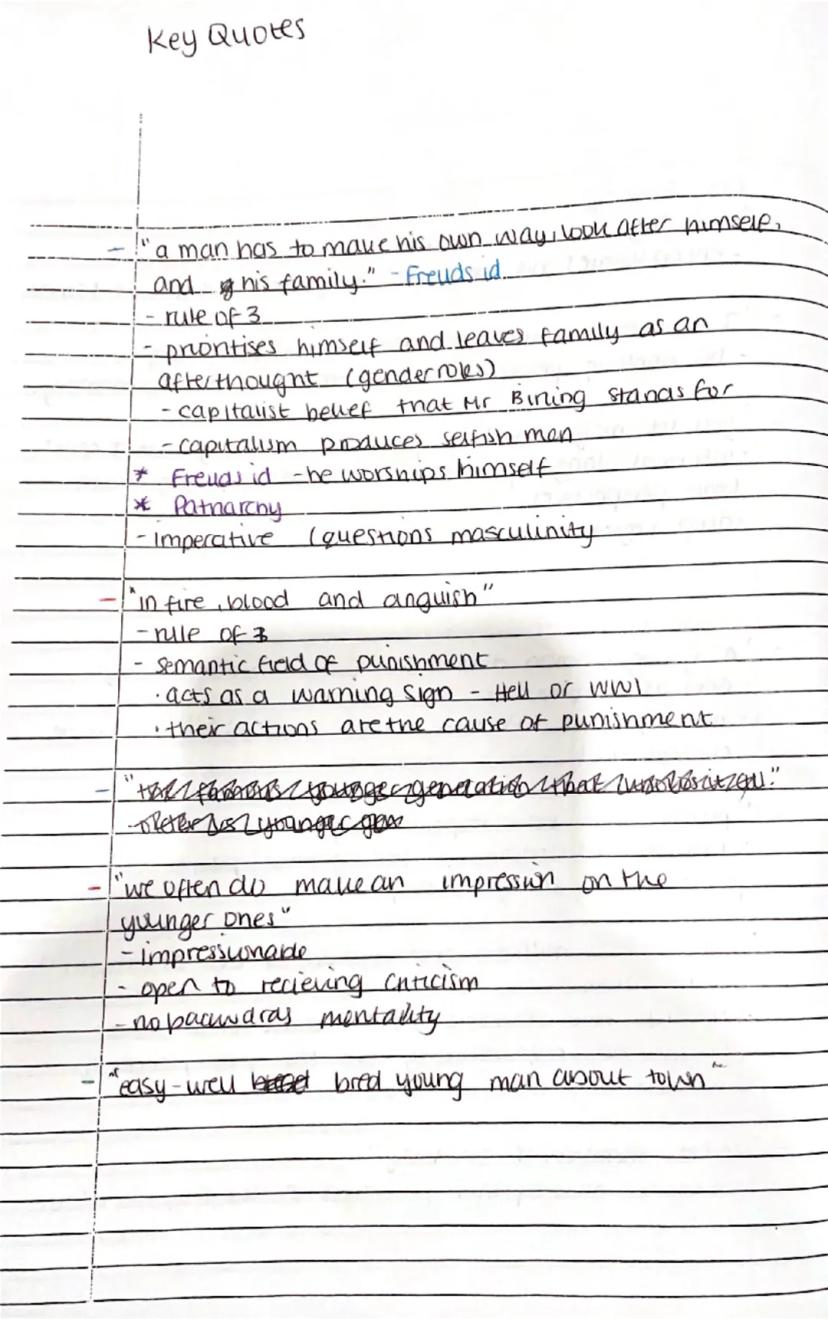 Key Quotes
- "a man has to make his own way, look after himself,
and his family." - Freuds id
- rule of 3
- prioritises himself and leaves family as an
afterthought (gender roles)
- capitalist belief that Mr Birling stands for
- capitalism produces selfish men
* Freuds id - he worships himself
* Patriarchy
- Imperative (questions masculinity
- "in fire, blood and anguish"
- rule of 3
- semantic field of punishment
· acts as a warning sign - Hell or WW1
· their actions are the cause of punishment
- "
- "we often do make an impression on the
younger ones"
- impressionable
- open to recieving criticism
- no backwards mentality
- "easy-well bred young man about town"